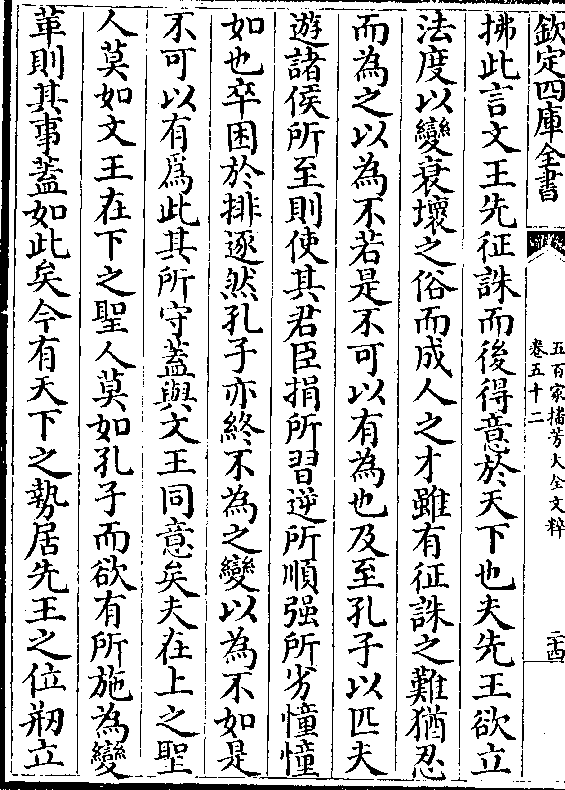 欽定四庫全書
五百家播芳大全文粹
卷五十二
二十四
拂此言文王先征誅而後得意於天下也夫先王欲立
法度以變衰壞之俗而成人之才雖有征誅之難猶忍
而為之以為不若是不可以有為也及至孔子以匹夫
遊諸侯所至則使其君臣捐所習逆所順强所劣憧憧
如也卒困於排逐然孔子亦終不為之變以為不如是
不可以有爲此其所守蓋與文王同意矣夫在上之聖
人莫如文王在下之聖人莫如孔子而欲有所施為變
革則其事蓋如此矣今有天下之勢居先王之位剏立